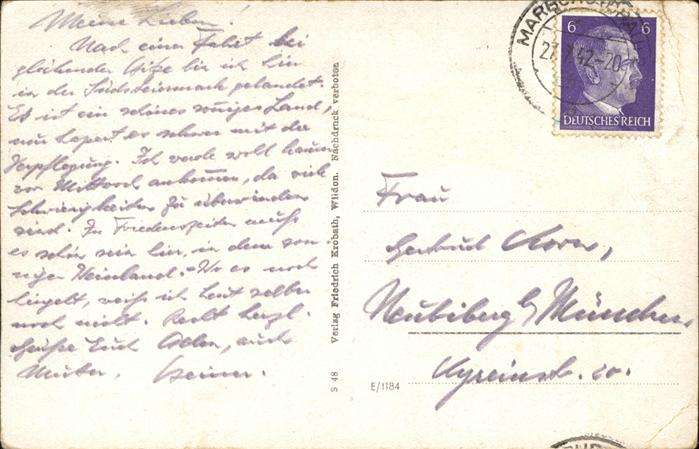 Meine Lieben!
Nach einer Fahrt bei
glühender Hitze bin ich hier
in der Südsteiermark gelandet.
Es ist ein schönes sonniges Land,
nur hapert es schwer mit der
Verpflegung. Ich werde wohl kaum
vor Mittwoch ankommen, da viele
Schwierigkeiten zu überwinden
sind. In Friedenszeiten muß
es schön sein hier, in dem son-
nigen Weinland. Wo es noch
weiß ich heut selber
noch nicht. Recht herzl.
Grüße Euch Allen, auch
Mutter.
Verlag Friedrich Krobath, Wildon. Nachdruck verboten
S 48
E/1184
MARBURG
27. 42-20
6 6
DEUTSCHES REICH
Frau
Gertrud
Neubiberg b/ München,